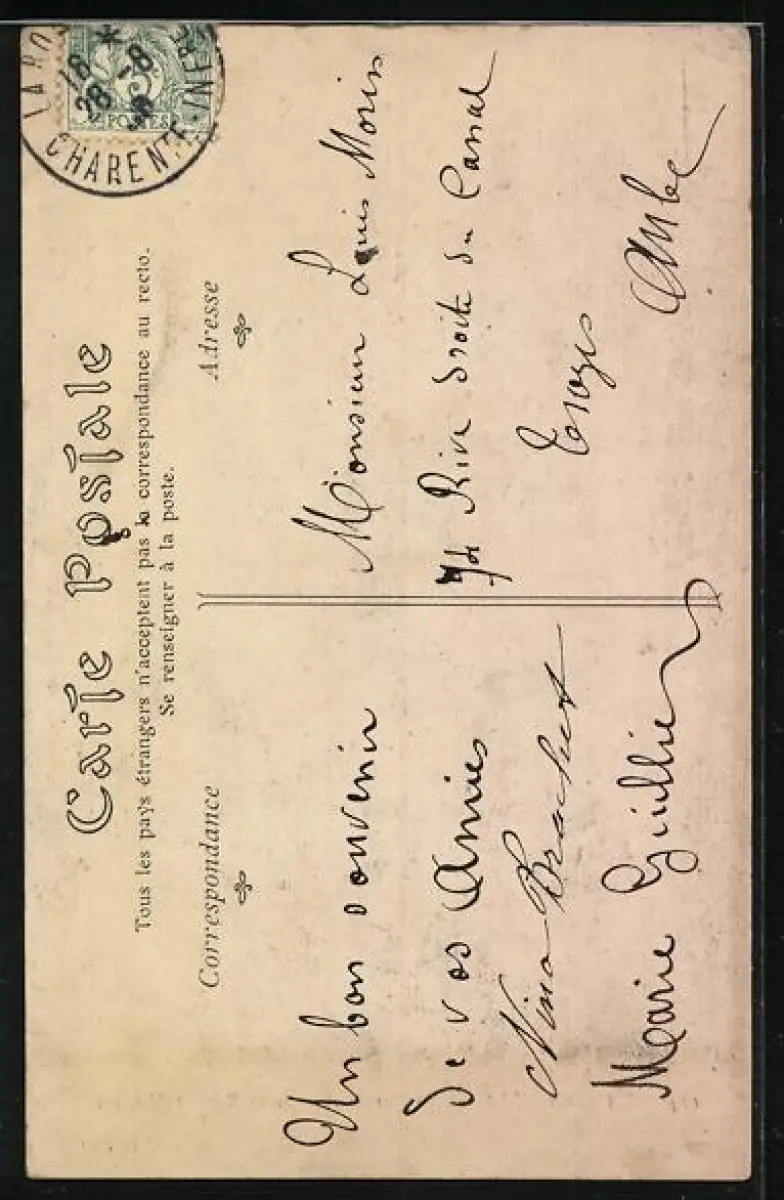 Carte Postale
Tous les pays étrangers n'acceptent pas la correspondance au recto.
Se renseigner à la poste.
Correspondance
Adresse
Un bon souvenir
de vos Amies
Nina Brachet
Marie Guillier
Monsieur Louis Morin
Rive droite du Canal
Troyes
Aube
18 *
28 -8
CHARENTE-INFRE
5
POSTES